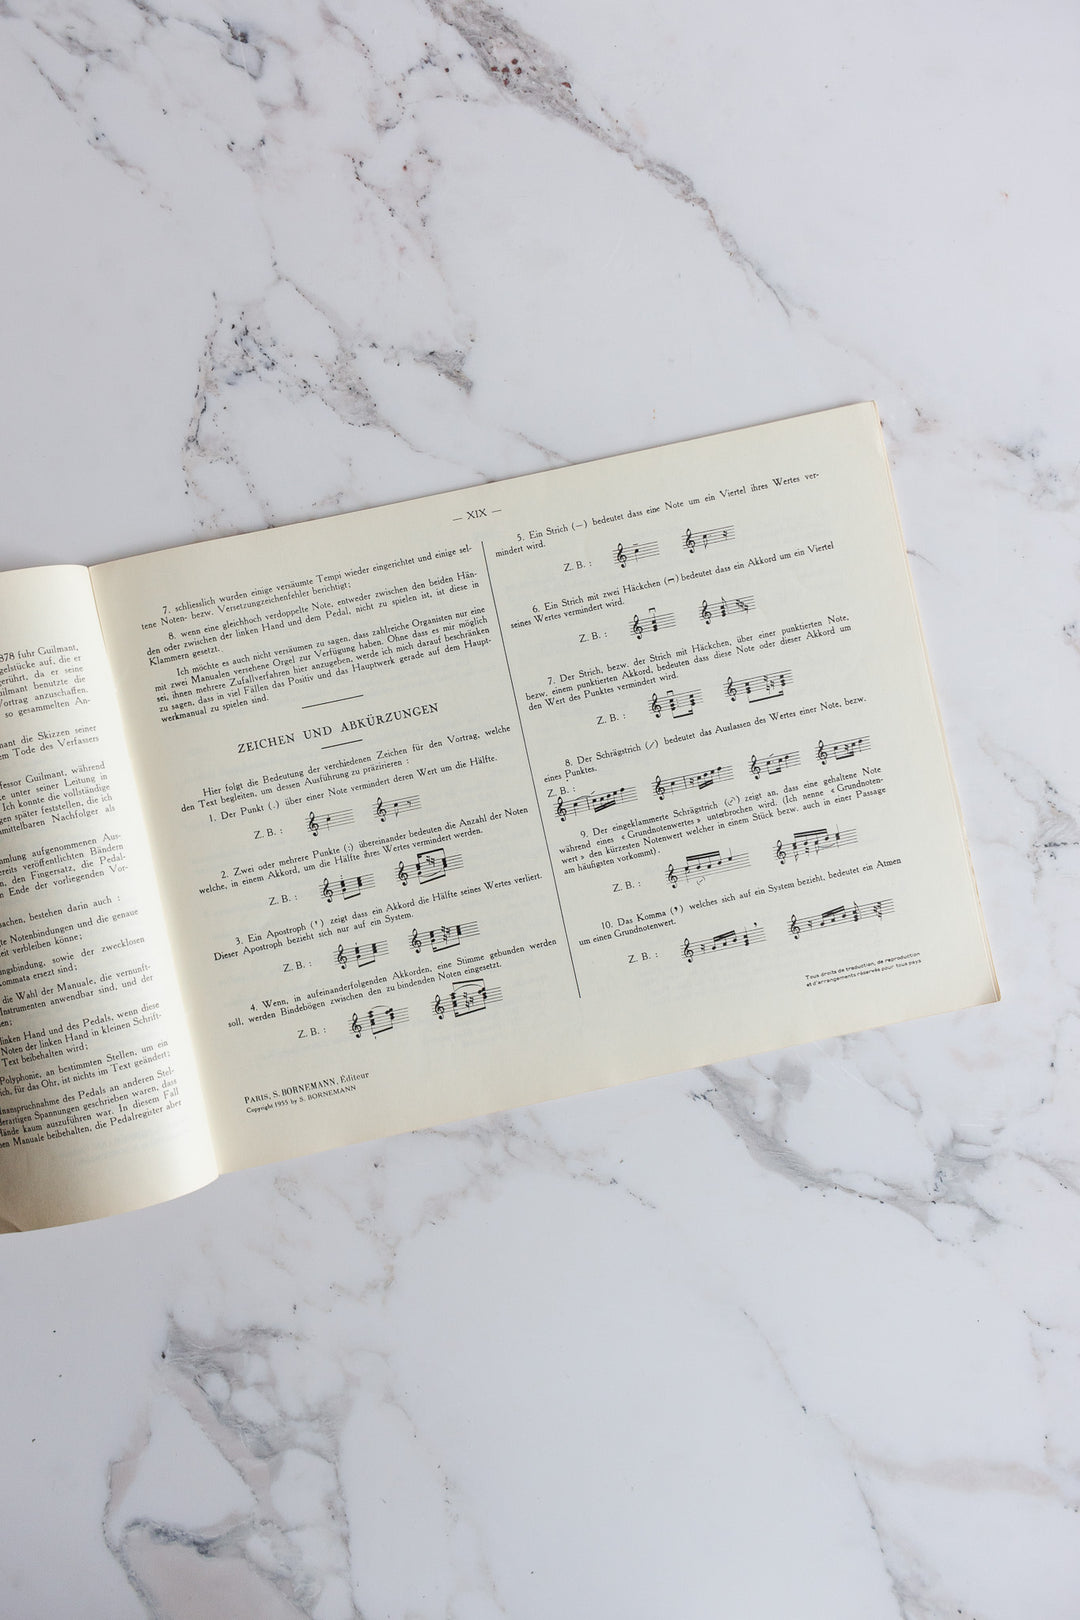 878 fuhr Guilmant,
gelstücke auf, die er
gerührt, da er seine
uilmant benutzte die
Vortrag anzuschaffen.
so gesammelten An-
mant die Skizzen seiner
em Tode des Verfassers
fessor Guilmant, während
unter seiner Leitung in
Ich konnte die vollständige
gen später feststellen, die ich
mittelbaren Nachfolger als
mmlung aufgenommenen Aus-
ereits veröffentlichten Bändern
n, den Fingersatz, die Pedal-
Ende der vorliegenden Vor-
sachen, bestehen darin auch :
te Notenbindungen und die genaue
eit verbleiben könne;
ngsbindung, sowie der zwecklosen
ommata ersezt sind;
die Wahl der Manuale, die vernunft-
Instrumenten anwendbar sind, und der
en;
linken Hand und des Pedals, wenn diese
Noten der linken Hand in kleinen Schrift-
Text beibehalten wird;
Polyphonie, an bestimmten Stellen, um ein
ich, für das Ohr, ist nichts im Text geändert;
nanspruchnahme des Pedals an anderen Stel-
derartigen Spannungen geschrieben waren, dass
Hände kaum auszuführen war. In diesem Fall
en Manuale beibehalten, die Pedalregister aber
— XIX —
7. schliesslich wurden einige versäumte Tempi wieder eingerichtet und einige sel-
tene Noten- bezw. Versetzungzeichenfehler berichtigt;
8. wenn eine gleichhoch verdoppelte Note, entweder zwischen den beiden Hän-
den oder zwischen der linken Hand und dem Pedal, nicht zu spielen ist, ist diese in
Klammern gesetzt.
Ich möchte es auch nicht versäumen zu sagen, dass zahlreiche Organisten nur eine
mit zwei Manualen versehene Orgel zur Verfügung haben. Ohne dass es mir möglich
sei, ihnen mehrere Zufallverfahren hier anzugeben, werde ich mich darauf beschränken
zu sagen, dass in viel Fällen das Positiv und das Hauptwerk gerade auf dem Haupt-
werkmanual zu spielen sind.
ZEICHEN UND ABKÜRZUNGEN
Hier folgt die Bedeutung der verchiedenen Zeichen für den Vortrag, welche
den Text begleiten, um dessen Ausführung zu präzirieren :
1. Der Punkt (.) über einer Note vermindert deren Wert um die Hälfte.
Z. B. :
2. Zwei oder mehrere Punkte (:) übereinander bedeuten die Anzahl der Noten
welche, in einem Akkord, um die Hälfte ihres Wertes vermindert werden.
Z. B. :
3. Ein Apostroph (') zeigt dass ein Akkord die Hälfte seines Wertes verliert.
Dieser Apostroph bezieht sich nur auf ein System.
Z. B. :
4. Wenn, in aufeinanderfolgenden Akkorden, eine Stimme gebunden werden
soll, werden Bindebögen zwischen den zu bindenden Noten eingesetzt.
Z. B. :
PARIS, S. BORNEMANN, Éditeur
Copyright 1955 by S. BORNEMANN
5. Ein Strich (—) bedeutet dass eine Note um ein Viertel ihres Wertes ver-
mindert wird.
Z. B. :
6. Ein Strich mit zwei Häckchen (⊓) bedeutet dass ein Akkord um ein Viertel
seines Wertes vermindert wird.
Z. B. :
7. Der Strich, bezw. der Strich mit Häckchen, über einer punktierten Note,
bezw. einem punktierten Akkord, bedeuten dass diese Note oder dieser Akkord um
den Wert des Punktes vermindert wird.
Z. B. :
8. Der Schrägstrich (/) bedeutet das Auslassen des Wertes einer Note, bezw.
eines Punktes.
Z. B. :
9. Der eingeklammerte Schrägstrich (⁄) zeigt an, dass eine gehaltene Note
während eines « Grundnotenwertes » unterbrochen wird. (Ich nenne « Grundnoten-
wert » den kürzesten Notenwert welcher in einem Stück bezw. auch in einer Passage
am häufigsten vorkommt).
Z. B. :
10. Das Komma (❜) welches sich auf ein System bezieht, bedeutet ein Atmen
um einen Grundnotenwert.
Z. B. :
Tous droits de traduction, de reproduction
et d'arrangements réservés pour tous pays